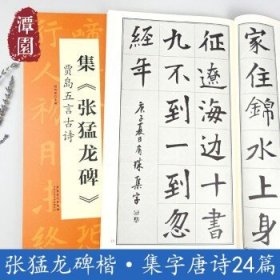 潭園
集《张猛龙碑》
贾岛五言古诗
家住錦水上身
征遼海邊十書
九不到一到忽
經年
张猛龙碑楷·集字唐诗24篇